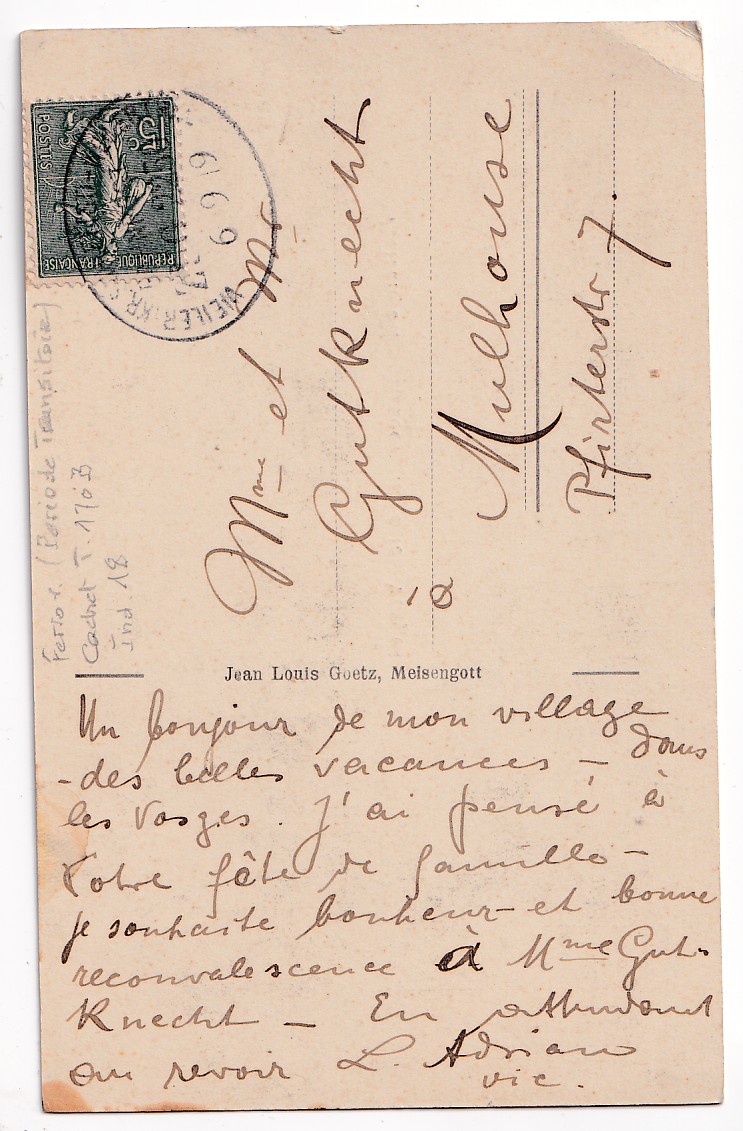 15c
POSTES
REPUBLIQUE FRANÇAISE
WEILER (KR.
19 6 19
Mme et Mr
Gutknecht
à Mulhouse
Pfirterstr 7.
(Periode Transitoire)
Cachet T. 170 B
Ind. 18
Jean Louis Goetz, Meisengott
Un bonjour de mon village
- des belles vacances - dans
les Vosges. J'ai pensé à
votre fête de famille -
je souhaite bonheur et bonne
reconvalescence à Mme Gut-
Knecht - En attendant
au revoir L. Adrian
vic.